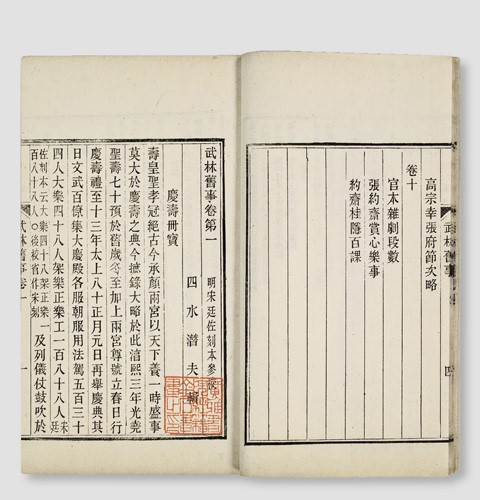 武林舊事
四
高宗幸張府節次略
卷十
官本雜劇段數
張約齋賞心樂事
約齋桂隱百課
武林舊事卷第一
明宋廷佐刻本參校
四水潛夫輯
慶壽冊寶
壽皇聖孝冠絕古今承顏兩宮以天下養一時盛事
莫大於慶壽之典今摭錄大略於此淳熙三年光堯
聖壽七十預於舊歲冬至加上兩宮尊號立春日行
慶壽禮至十三年太上八十正月元日再舉慶典其
日文武百僚集大慶殿各服朝服用法駕五百三十
四人大樂四十八人架樂正樂工一百八十八人宋廷
佐刻本云大樂四十八架樂正
百八十八人〇後校省作宋刻
及列儀仗鼓吹於
武林舊事卷一
一